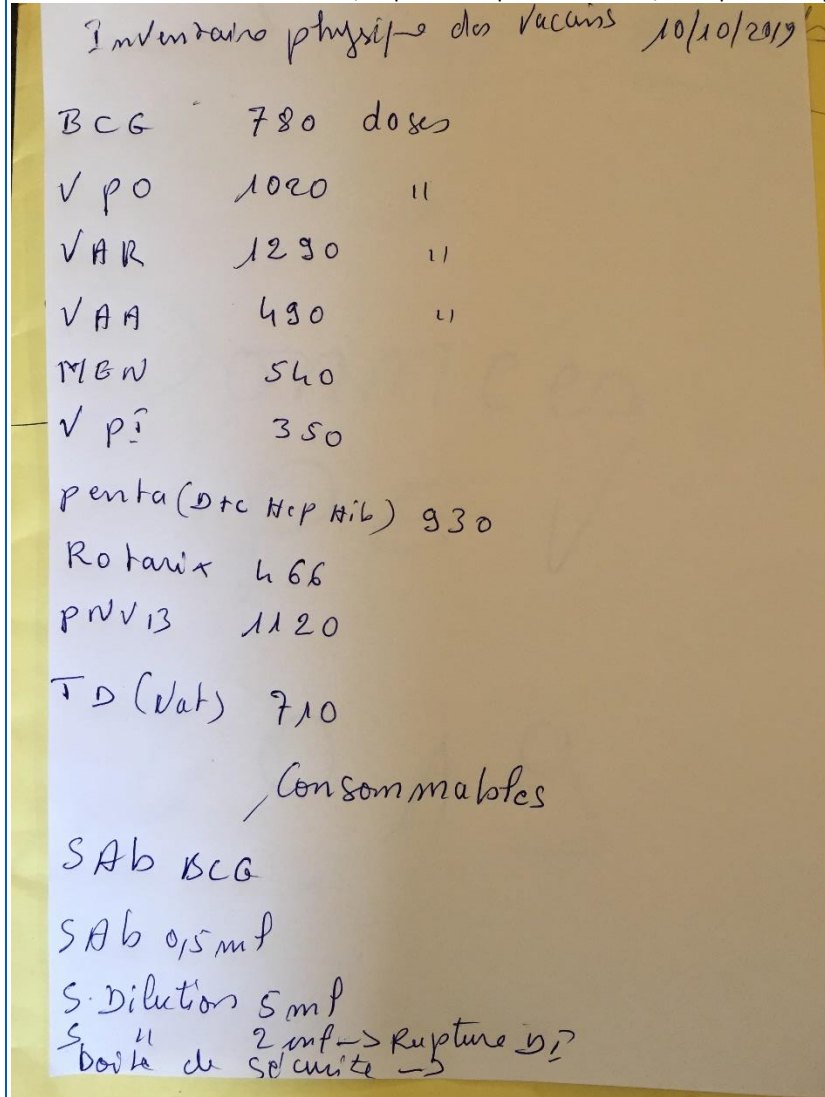 Inventaire physique des vaccins 10/10/2019
BCG 780 doses
VPO 1020 "
VAR 1290 "
VAA 490 "
MEN 540
VPI 350
penta (Dtc Hep Hib) 930
Rotarix 466
PNV13 1120
TD (Vat) 710
Consommables
SAb BCG
SAb 0,5 ml
S. Dilution 5 ml
S. " 2 ml -> Rupture
boite de sécurité ->